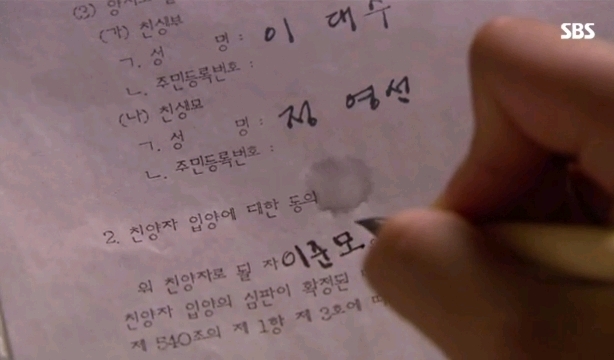 SBS
(가) 친생부
ㄱ. 성 명 : 이 대 수
ㄴ. 주민등록번호 :
(나) 친생모
ㄱ. 성 명 : 정 영 선
ㄴ. 주민등록번호 :
2. 친양자 입양에 대한 동의
위 친양자로 될 자 이준모
친양자 입양의 심판이 확정된
제 540조의 제 1항 제 3호에